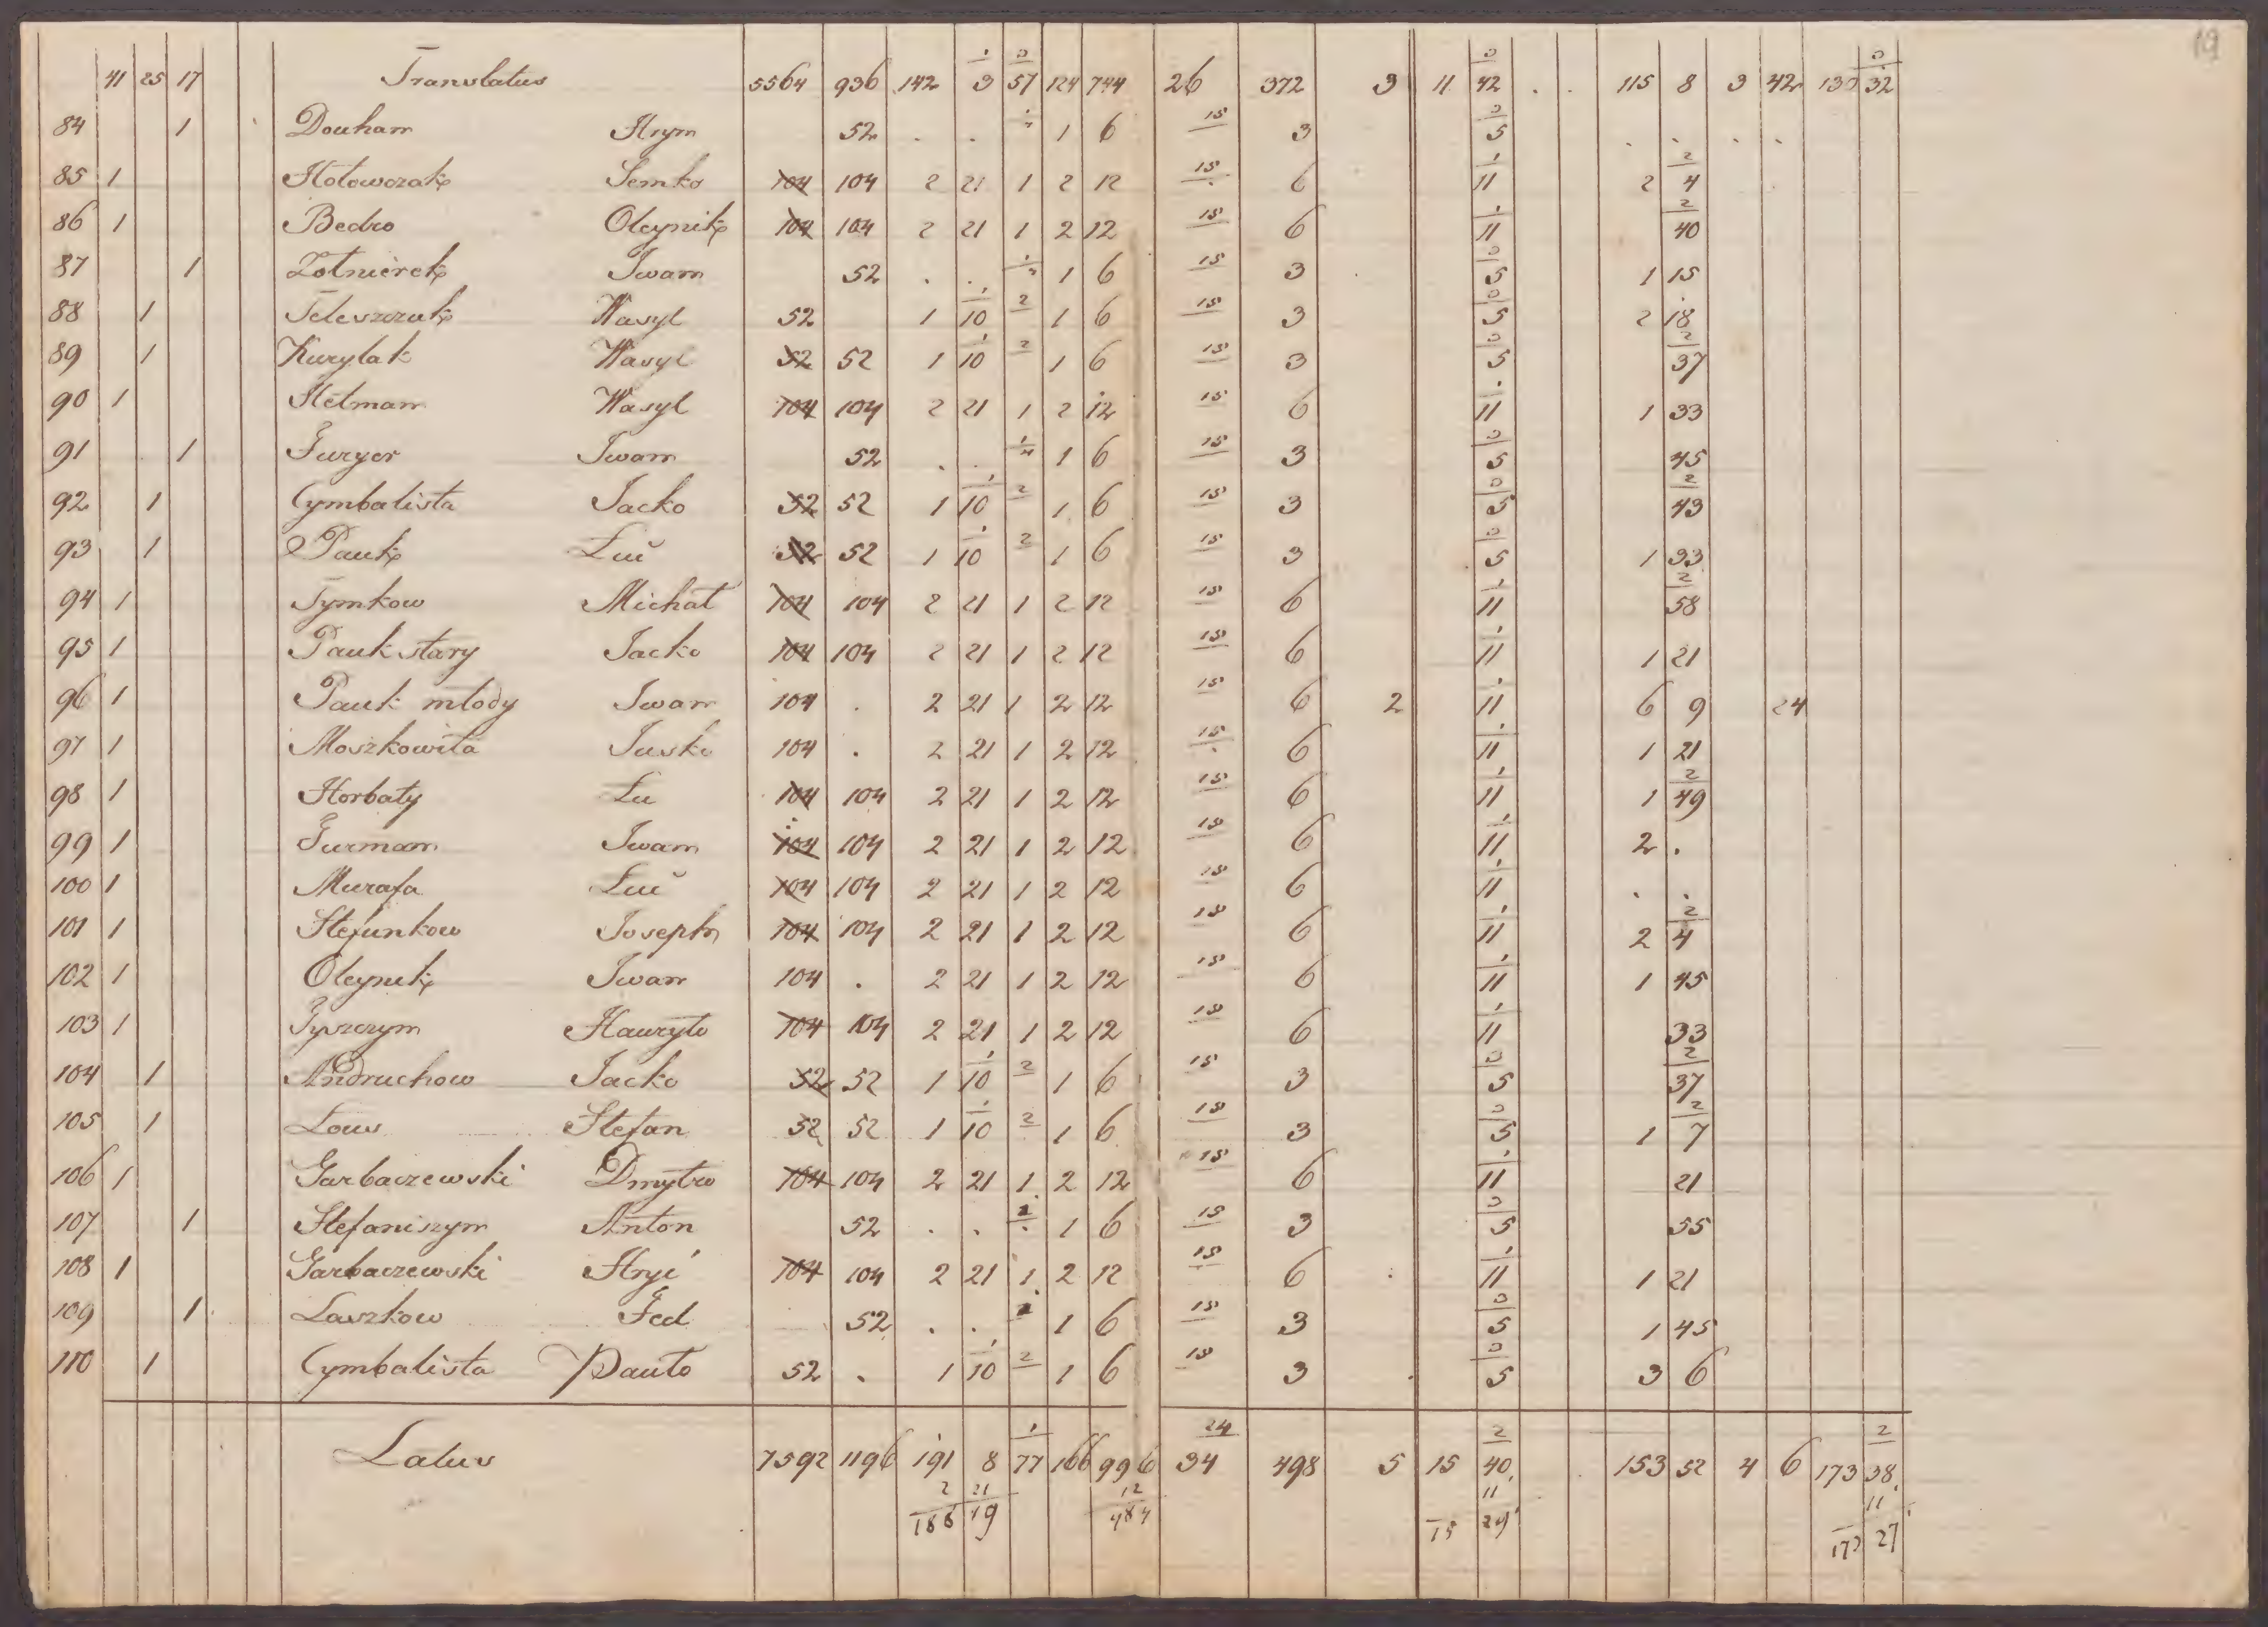 19
41 25 17 Translatus 5564 936 142 1/3 3/57 124 744 26 372 3 11 3/42 . . 115 8 3 42 3/32
84 1 Douhan Hrym 52 . . 1 6 15 3 3/5 . . . .
85 1 Semko 104 104 2 21 1 2 12 15 6 1/11 2 2/4
86 1 Bedro Oleynik 104 104 2 21 1 2 12 15 6 1/11 2/40
87 1 Zolnierek Iwan 52 . . 1 6 15 3 3/5 1 15
88 1 Teleszczuk Wasyl 52 1 1/10 2 1 6 15 3 3/5 2 18
89 1 Kurylak Wasyl 52 52 1 1/10 2 1 6 15 3 3/5 2/37
90 1 Hetman Wasyl 104 104 2 21 1 2 12 15 6 1/11 1 33
91 1 Furyer Iwan 52 . . 1 6 15 3 3/5 45
92 1 Cymbalista Jacko 52 52 1 1/10 2 1 6 15 3 3/5 2/43
93 1 Pauk Luć 52 52 1 1/10 2 1 6 15 3 3/5 1 33
94 1 Tymkow Michał 104 104 2 21 1 2 12 15 6 1/11 2/58
95 1 Pauk stary Jacko 104 104 2 21 1 2 12 15 6 1/11 1 21
96 1 Pauk młody Iwan 104 . 2 21 1 2 12 15 6 2 1/11 6 9 24
97 1 Moszkowita Jusko 104 . 2 21 1 2 12 15 6 1/11 1 21
98 1 Horbaty Lu 104 104 2 21 1 2 12 15 6 1/11 1 2/49
99 1 Furman Iwan 104 104 2 21 1 2 12 15 6 1/11 2 .
100 1 Murafa Luć 104 104 2 21 1 2 12 15 6 1/11 . .
101 1 Stefunkow Joseph 104 104 2 21 1 2 12 15 6 1/11 2 2/4
102 1 Oleynik Iwan 104 . 2 21 1 2 12 15 6 1/11 1 45
103 1 Hawryło 104 104 2 21 1 2 12 15 6 1/11 33
104 1 Andruchow Jacko 52 52 1 1/10 2 1 6 15 3 3/5 2/37
105 1 Stefan 52 52 1 1/10 2 1 6 15 3 3/5 1 2/7
106 1 Garbaczewski Dmytro 104 104 2 21 1 2 12 15 6 1/11 21
107 1 Stefaniszyn Anton 52 . . 1 6 15 3 3/5 55
108 1 Garbaczewski Hryć 104 104 2 21 1 2 12 15 6 1/11 1 21
109 1 Laszkow Fed 52 . . 1 6 15 3 3/5 1 45
110 1 Cymbalista Pauło 52 . 1 1/10 2 1 6 15 3 3/5 3 6
Latus 7592 1196 191 8 1/77 166 996 24/34 498 5 15 2/40 153 52 4 6 173 2/38
2 21 12 11 11
188 19 27